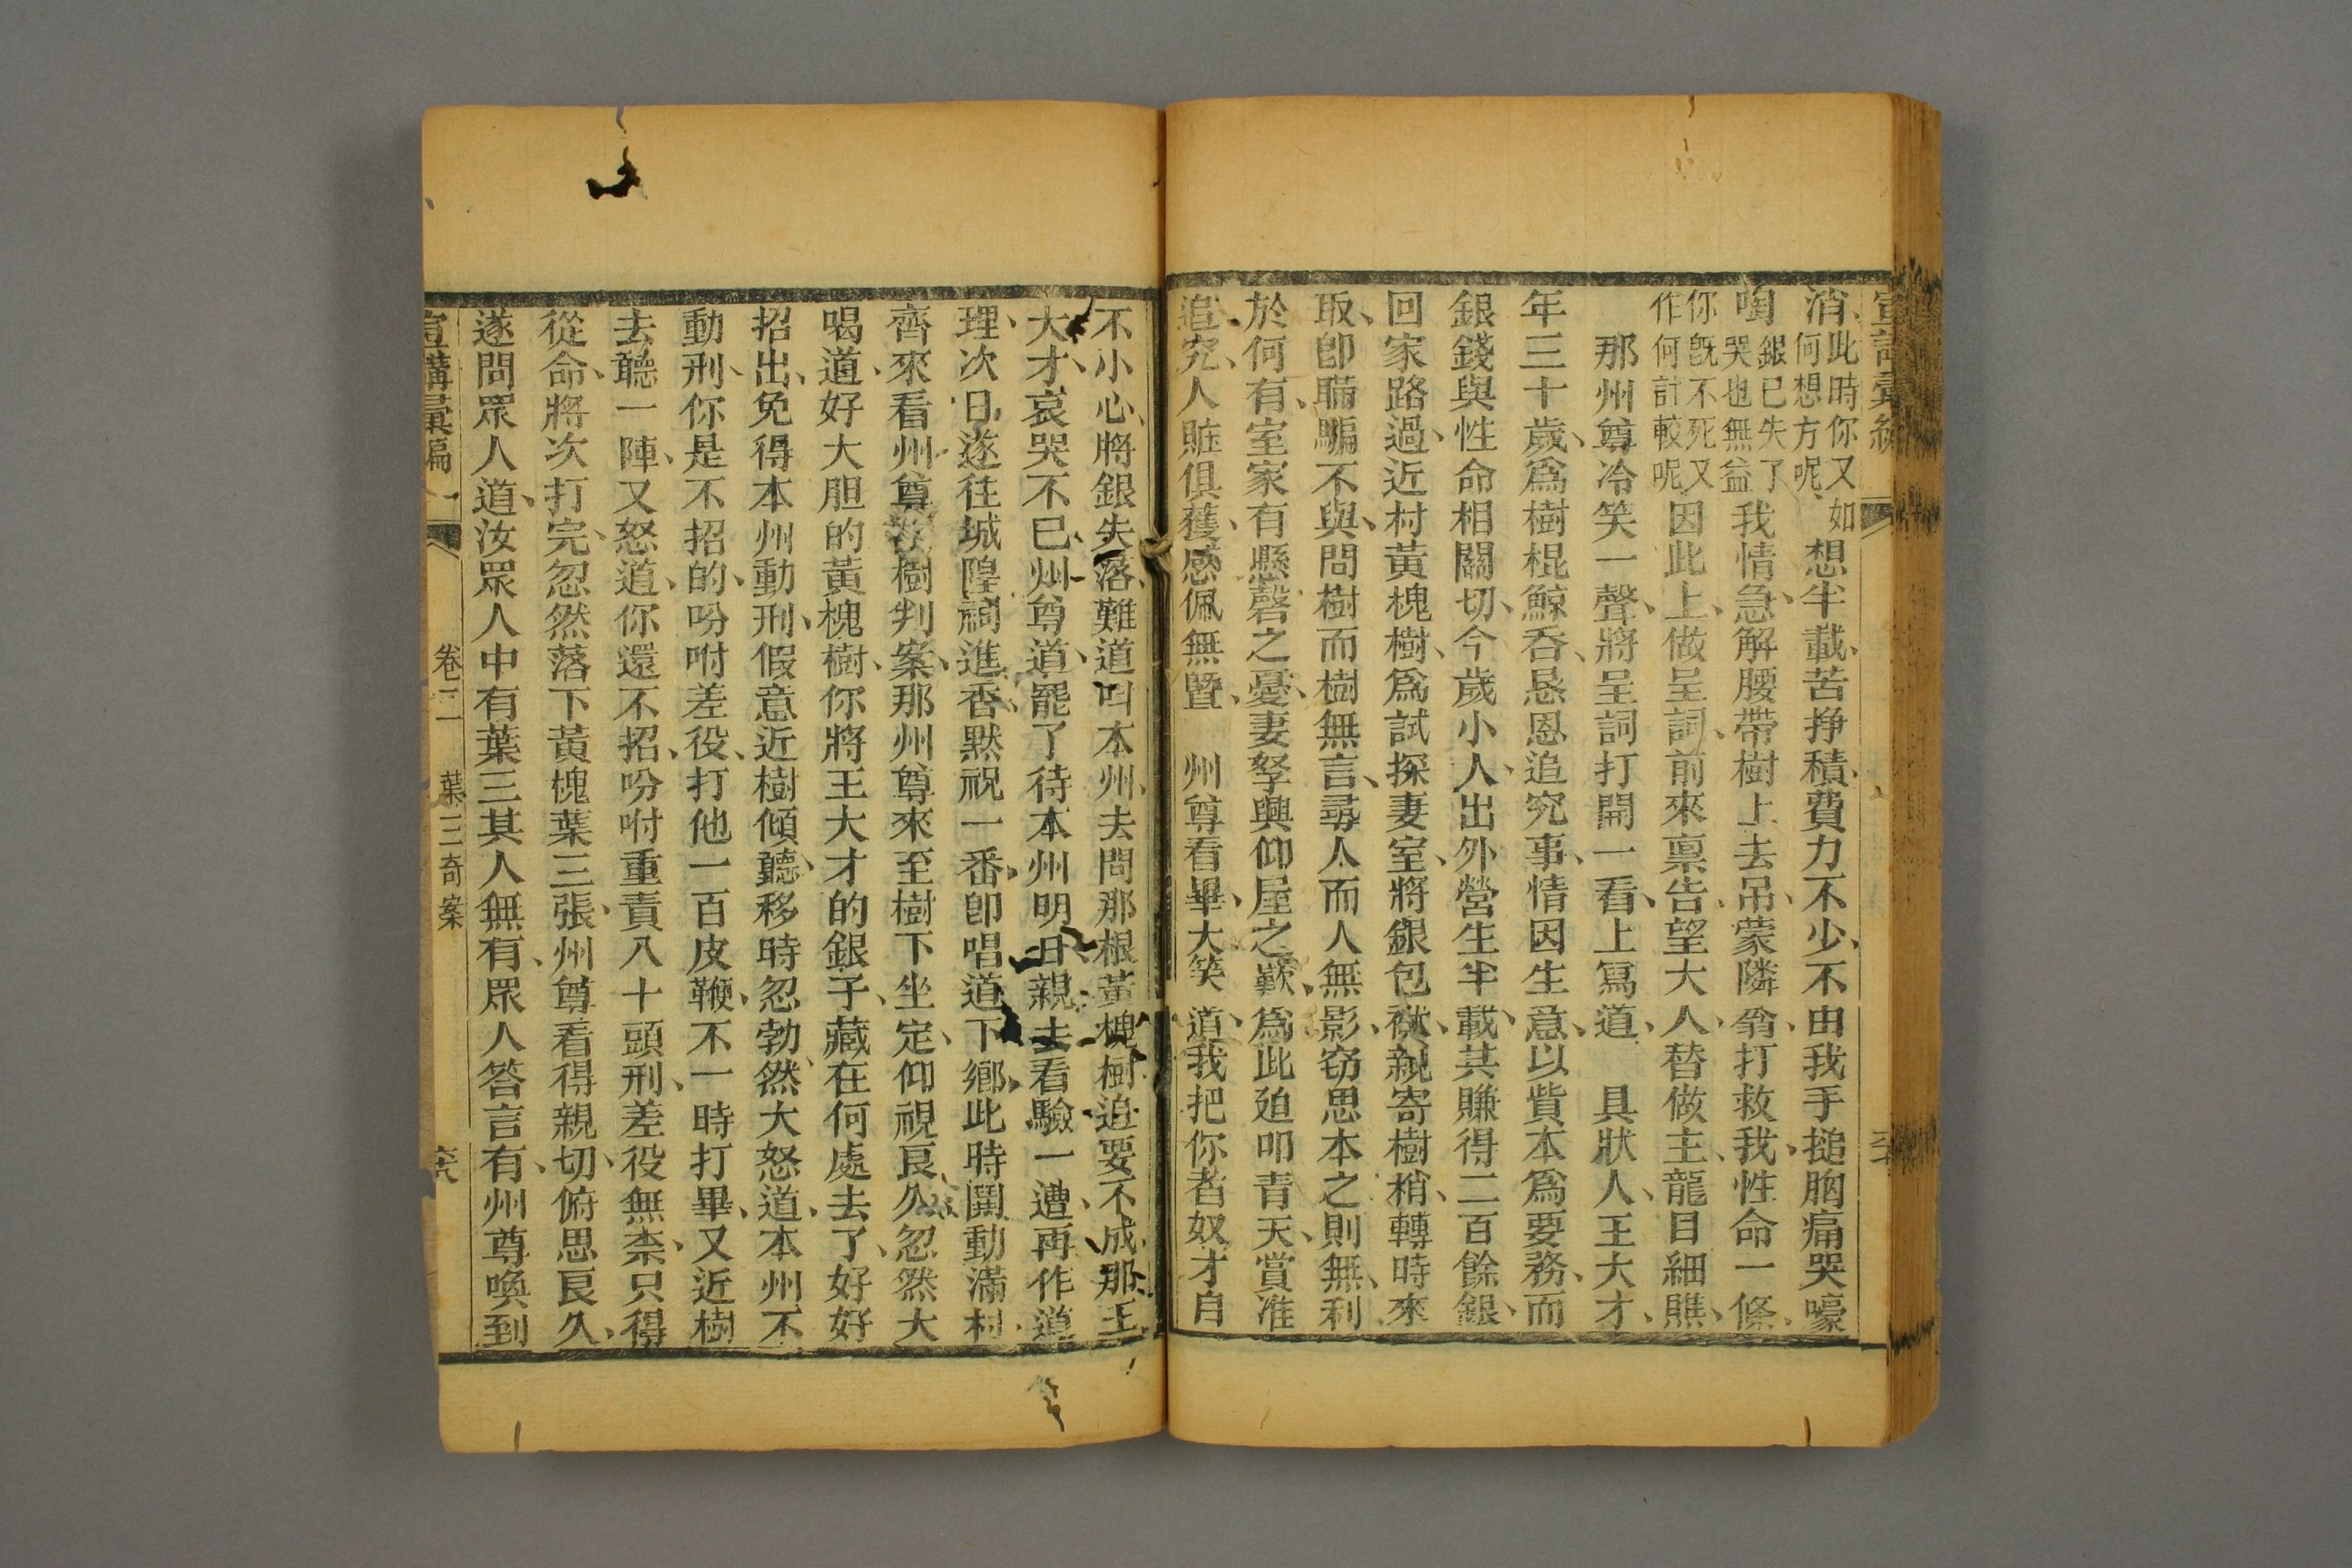 消、此時你又如何想方呢、想半載、苦掙積、費力不少、不由我手搥胸痛哭嚎
啕銀已失了哭也無益我情急、解腰帶樹上去吊、蒙隣翁、打救我、性命一條、
你旣不死又作何計較呢因此上、做呈詞、前來禀告、望大人、替做主、龍目細瞧、
那州尊冷笑一聲、將呈詞打開一看、上寫道、具狀人、王大才、
年三十歲、爲樹棍鯨吞、恳恩追究事、情因生意、以貲本爲要務、而
銀錢與性命相關切、今歲小人、出外營生半載、其賺得二百餘銀、
回家路過、近村黃槐樹、爲試探妻室、將銀包袱、親寄樹梢、轉時來
取、卽瞞騙不與、問樹而樹無言、尋人而人無影、窃思本之則無、利
於何有、室家有懸磬之憂、妻孥興仰屋之歎、爲此廹叩青天、賞准
追究、人賍俱獲、感佩無曁、州尊看畢、大笑道、我把你者奴才、自
不小心、將銀失落、難道叫本州、去問那根黃槐樹追要不成、那王
大才、哀哭不已、州尊道、罷了待本州明日親去看驗一遭、再作道
理、次日、遂往城隍祠進香、默祝一番、卽唱道下鄉、此時鬨動滿村、
齊來看州尊、審樹判案、那州尊來至樹下坐定、仰視良久、忽然大
喝道、好大胆的黃槐樹、你將王大才的銀子、藏在何處去了、好好
招出、免得本州動刑、假意近樹傾聽、移時忽勃然大怒道、本州不
動刑、你是不招的、吩咐差役、打他一百皮鞭、不一時打畢、又近樹
去聽一陣、又怒道、你還不招、吩咐重責八十頭刑、差役無柰、只得
從命、將次打完、忽然落下黃槐葉三張、州尊看得親切、俯思良久、
遂問眾人道、汝眾人中有葉三其人無有、眾人答言有、州尊喚到
宣講彙編 卷二 葉三奇案